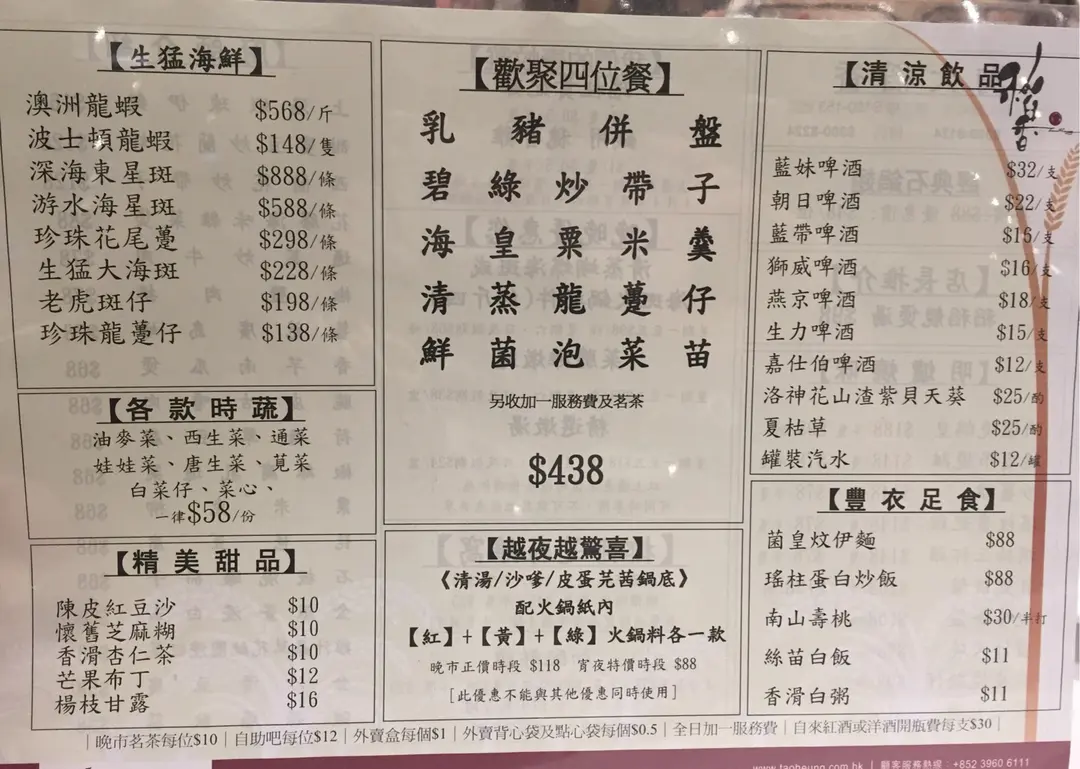 【生猛海鮮】
澳洲龍蝦 $568/斤
波士頓龍蝦 $148/隻
深海東星斑 $888/條
游水海星斑 $588/條
珍珠花尾躉 $298/條
生猛大海斑 $228/條
老虎斑仔 $198/條
珍珠龍躉仔 $138/條
【各款時蔬】
油麥菜、西生菜、通菜
娃娃菜、唐生菜、莧菜
白菜仔、菜心、
一律$58/份
【精美甜品】
陳皮紅豆沙 $10
懷舊芝麻糊 $10
香滑杏仁茶 $10
芒果布丁 $12
楊枝甘露 $16
【歡聚四位餐】
乳豬併盤
碧綠炒帶子
海皇粟米羹
清蒸龍躉仔
鮮菌泡菜苗
另收加一服務費及茗茶
$438
【越夜越驚喜】
《清湯/沙嗲/皮蛋芫茜鍋底》
配火鍋紙內
【紅】+【黃】+【綠】火鍋料各一款
晚市正價時段 $118 宵夜特價時段 $88
[此優惠不能與其他優惠同時使用]
【清涼飲品】
稻香
藍妹啤酒 $32/支
朝日啤酒 $22/支
藍帶啤酒 $15/支
獅威啤酒 $16/支
燕京啤酒 $18/支
生力啤酒 $15/支
嘉仕伯啤酒 $12/支
洛神花山渣紫貝天葵 $25/酌
夏枯草 $25/酌
罐裝汽水 $12/罐
【豐衣足食】
菌皇炆伊麵 $88
瑤柱蛋白炒飯 $88
南山壽桃 $30/半打
絲苗白飯 $11
香滑白粥 $11
|晚市茗茶每位$10|自助吧每位$12|外賣盒每個$1|外賣背心袋及點心袋每個$0.5|全日加一服務費|自來紅酒或洋酒開瓶費每支$30|
www.taoheung.com.hk | 顧客服務熱線：+852 3960 6111